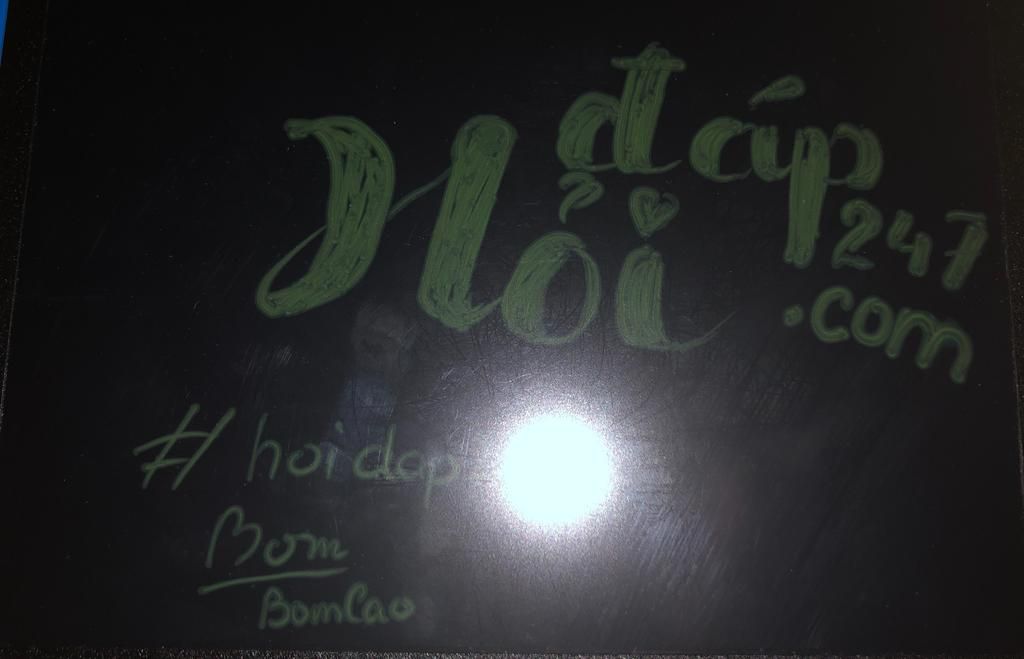 Hỏi đáp 247
.com
#hoidap
Bom
BomCao